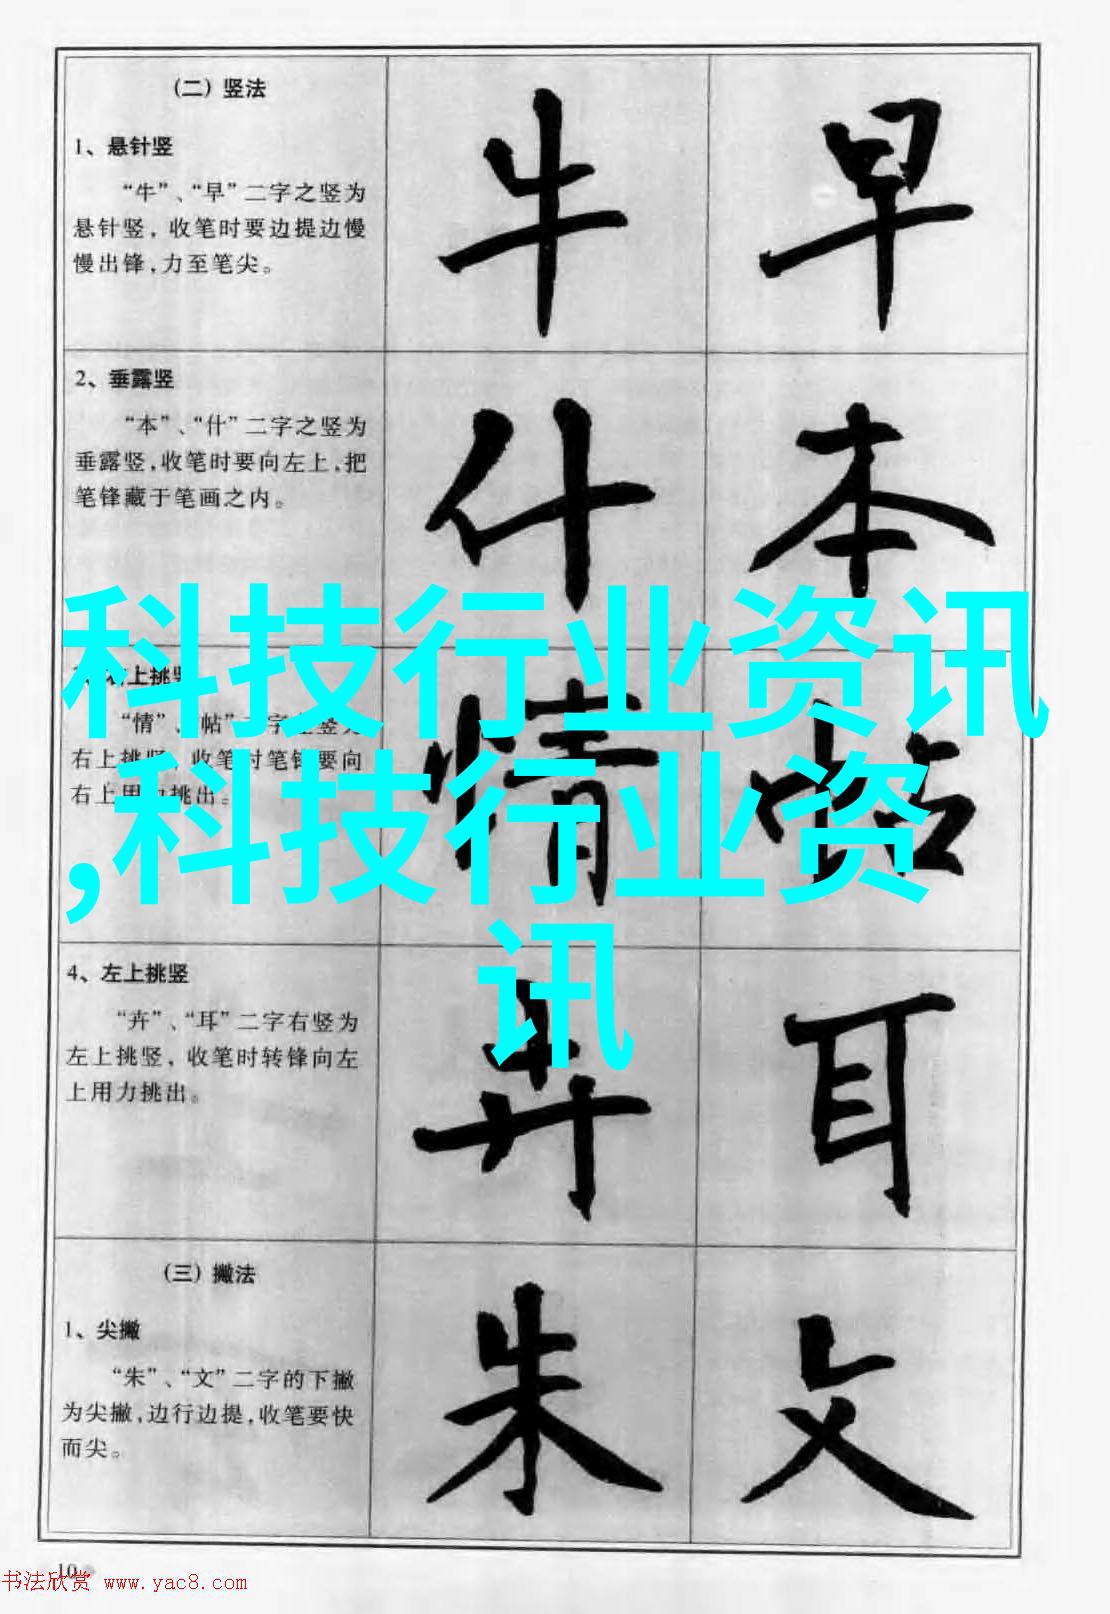 （二）竖法
1、悬针竖
“牛”、“早”二字之竖为
悬针竖，收笔时要边提边慢
慢出锋，力至笔尖。
牛 早
2、垂露竖
“本”、“什”二字之竖为
垂露竖，收笔时要向左上，把
笔锋藏于笔画之内。
什 本
科技行业资讯
,科技行业资
讯
右上挑竖
“情”、“帖”二字左竖为
右上挑竖，收笔时笔锋要向
右上用力挑出。
情 帖
4、左上挑竖
“卉”、“耳”二字右竖为
左上挑竖，收笔时转锋向左
上用力挑出。
卉 耳
（三）撇法
1、尖撇
“朱”、“文”二字的下撇
为尖撇，边行边提，收笔要快
而尖。
朱 文
10
书法欣赏 www.yac8.com